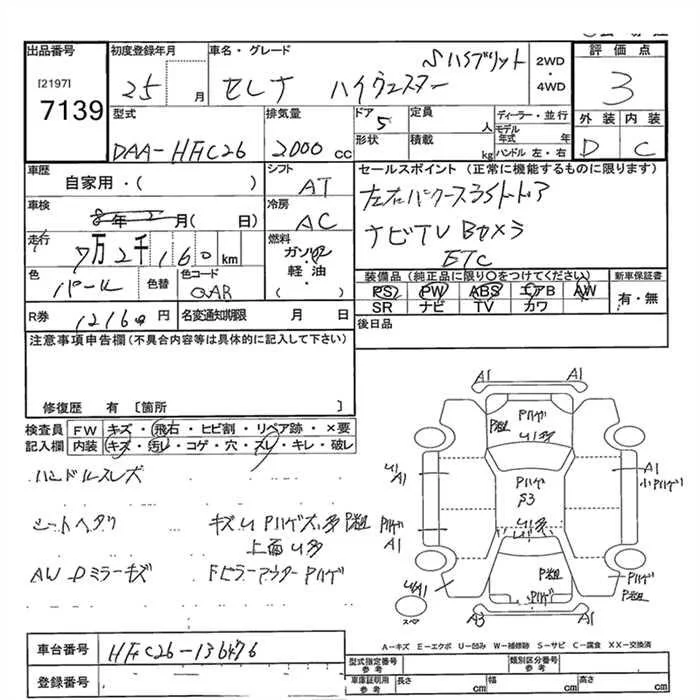 出品番号
[2197]
7139
初度登録年月
25 月
車名・グレード
Sハイブリット
セレナ ハイウェスター
2WD
・
4WD
評価点
3
外装 内装
D C
型式
DAA-HFC26
排気量
2000 cc
ドア
5
形状
定員
人
積載
kg
ディーラー・並行
モデル
年式 年
ハンドル 左・右
車歴
自家用・( )
シフト
AT
車検
8年 2月( 日)
冷房
AC
走行
7万2千160 km
燃料
ガソリン
・
軽油
( )
色
パール
色替
色コード
QAB
R券
12160円
名変通知期限 月 日
セールスポイント (正常に機能するものに限ります)
ナビTV Bカメラ
ETC
装備品 (純正品に限り○をつけてください)
PS PW ABS エアB AW
SR ナビ TV カワ
新車保証書
有・無
後日品
注意事項申告欄(不具合内容等は具体的に記入して下さい)
修復歴 有 [箇所 ]
検査員
記入欄
FW キズ・飛石・ヒビ割・リペア跡・×要
内装 キズ・汚レ・コゲ・穴・スレ・キレ・破レ
ハンドルスレズ
シートヘタリ
キズU Pハゲ大小多 P粗
上面U多
AW Dミラーキズ
Fピラーアウター Pハゲ
A1
A1
P粗
Pハゲ
U多
U/A1
A1
小Pハゲ
Pハゲ
S3
Pハゲ
A1
U多
U/A1
P粗
Pハゲ
P粗
スペア
A3
A1
A-キズ E-エクボ U-凹み W-補修跡 S-サビ C-腐食 XX-交換済
車台番号
HFC26-136476
登録番号
型式指定番号
参考
類別区分番号
参考
車庫証明用
参考
長さ cm
幅 cm
高さ cm